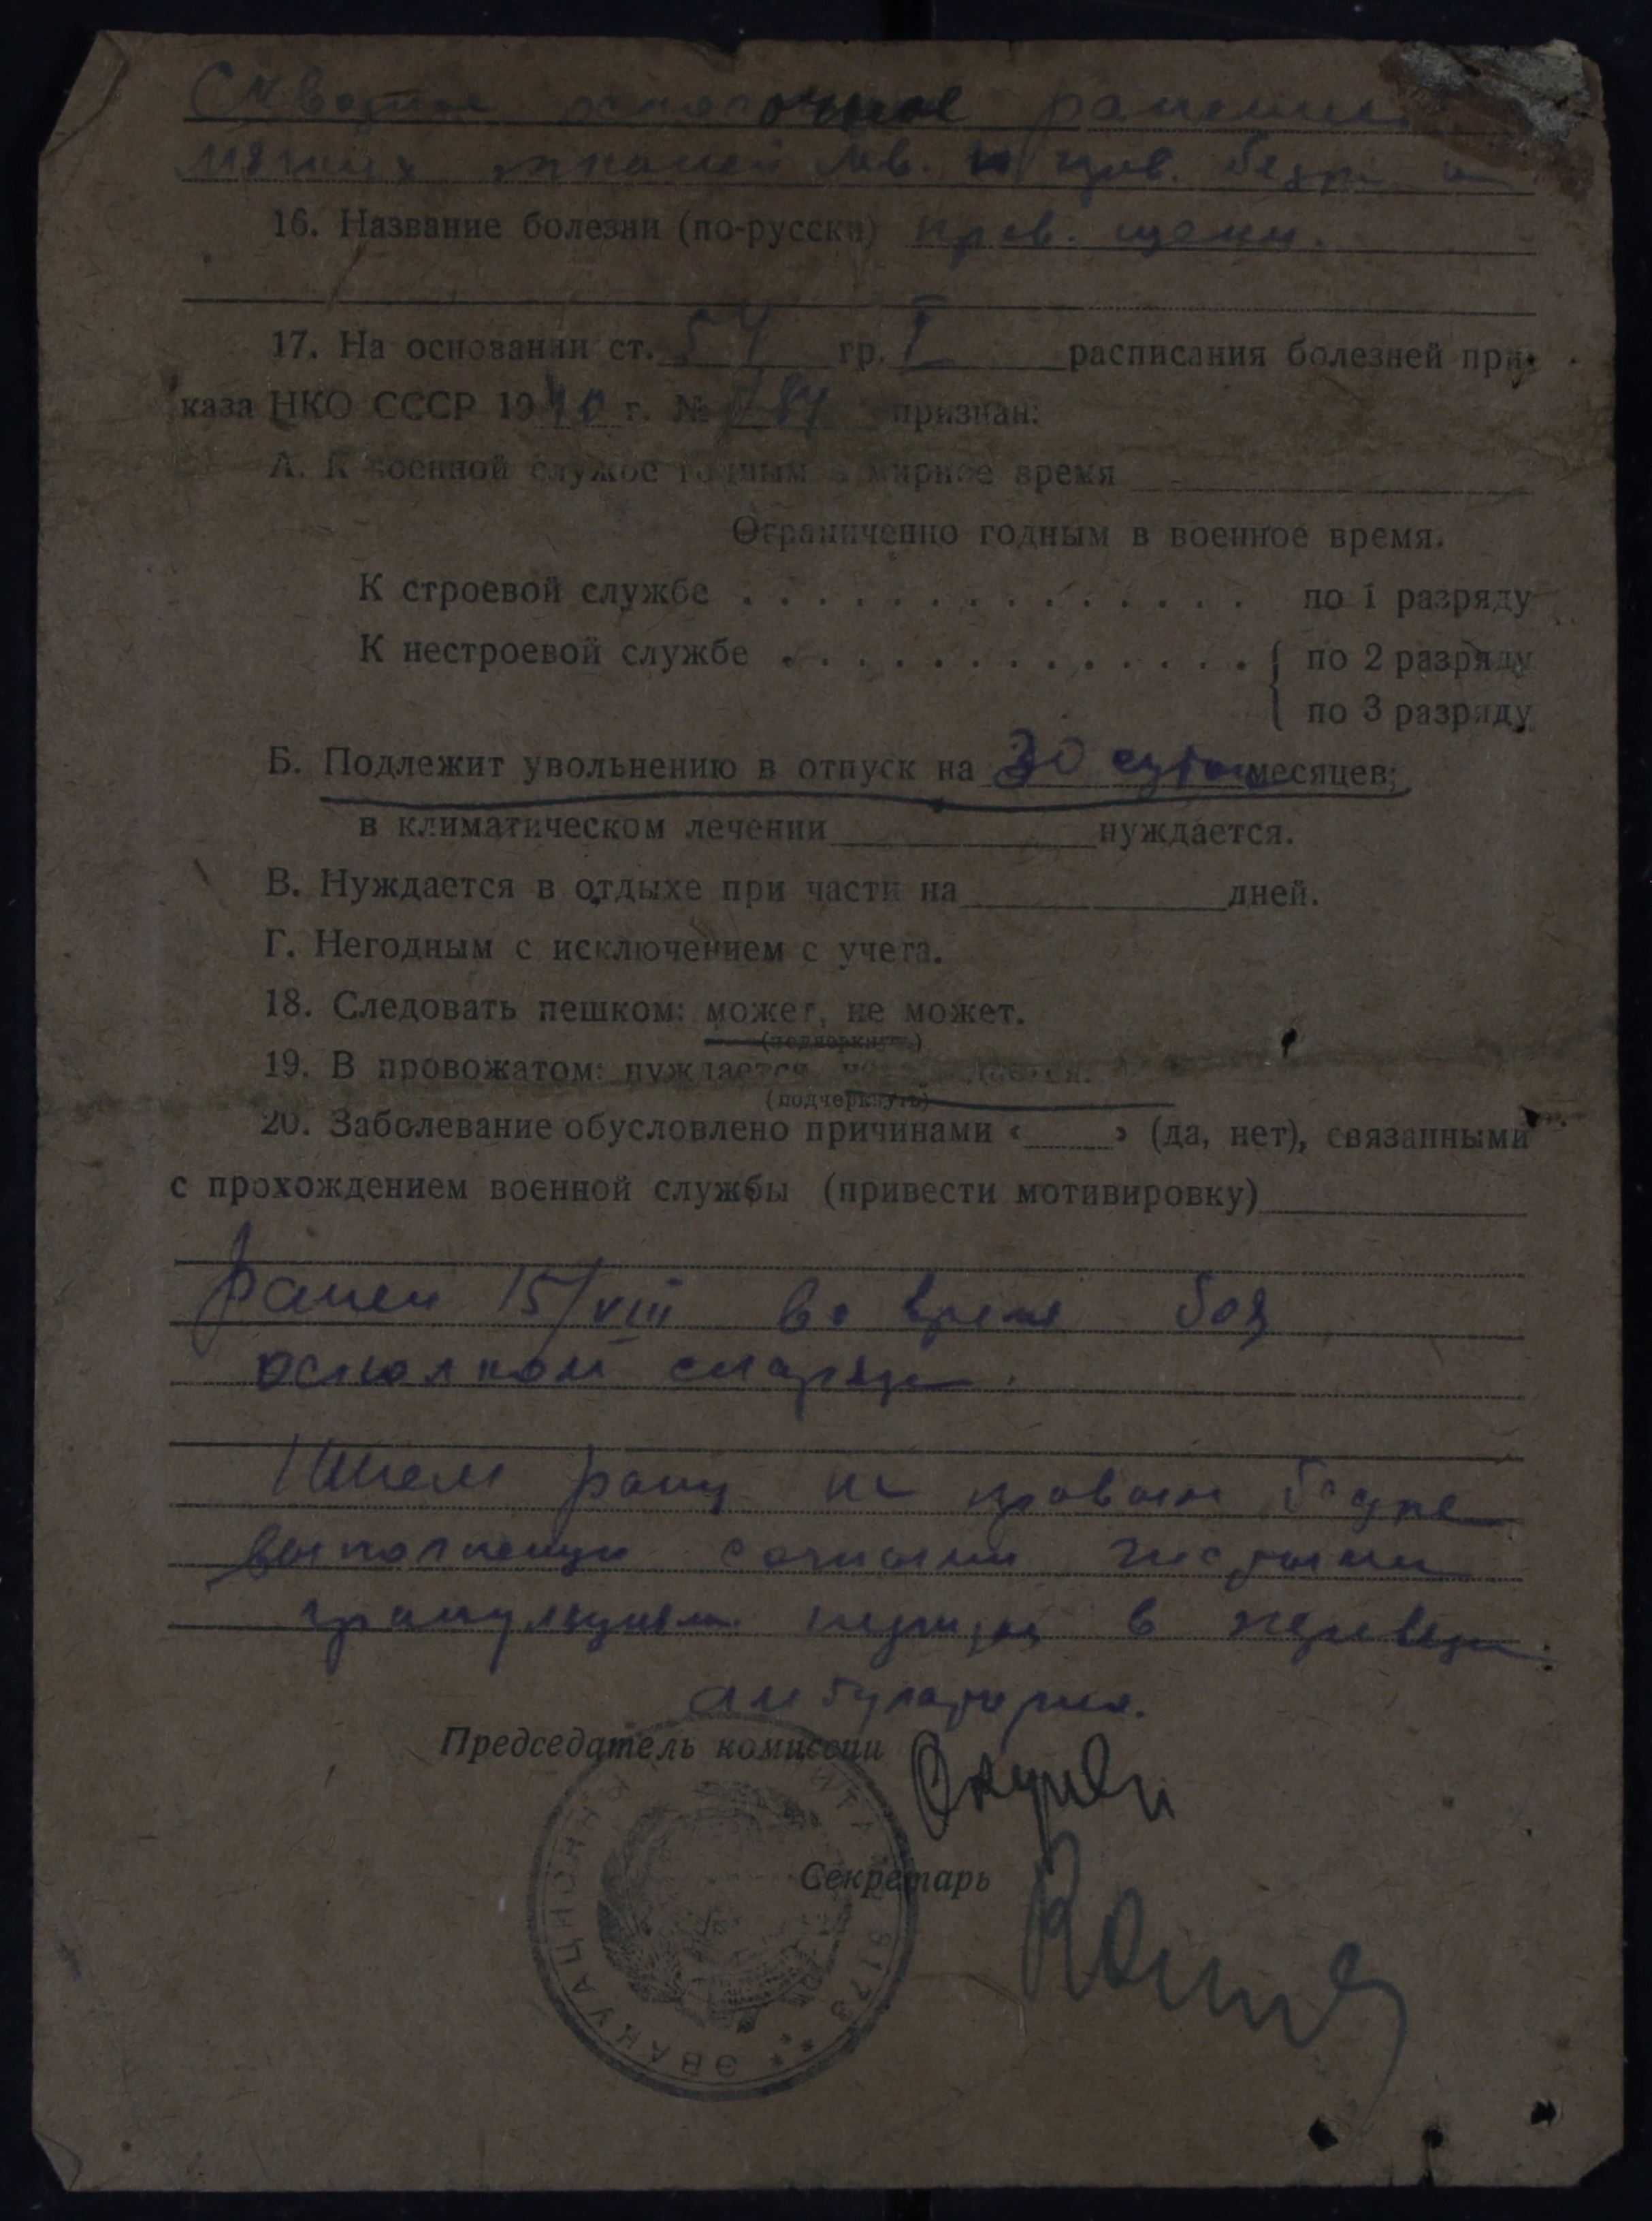 Сквозное осколочное ранение
мягких тканей лев. и прав. бедра и
16. Название болезни (по-русски) прав. щеки.
17. На основании ст. 54 гр. I расписания болезней при-
каза НКО СССР 1940 г. № 184 признан:
А. К военной службе годным в мирное время
Ограниченно годным в военное время.
К строевой службе . . . . . . . . . . . . . . по 1 разряду
К нестроевой службе . . . . . . . . . . . . . { по 2 разряду
{ по 3 разряду
Б. Подлежит увольнению в отпуск на 30 суток месяцев;
в климатическом лечении нуждается.
В. Нуждается в отдыхе при части на дней.
Г. Негодным с исключением с учета.
18. Следовать пешком: может, не может.
(подчеркнуть)
19. В провожатом: нуждается, не нуждается.
(подчеркнуть)
20. Заболевание обусловлено причинами « » (да, нет), связанными
с прохождением военной службы (привести мотивировку)
Ранен 15/VIII во время боя
осколком снаряда.
Имеет рану на правом бедре
выполненную сочными чистыми
грануляциями. нуждается в перевязке
амбулаторно.
Председатель комиссии
Секретарь
ЭВАКУАЦИОННЫЙ 8173